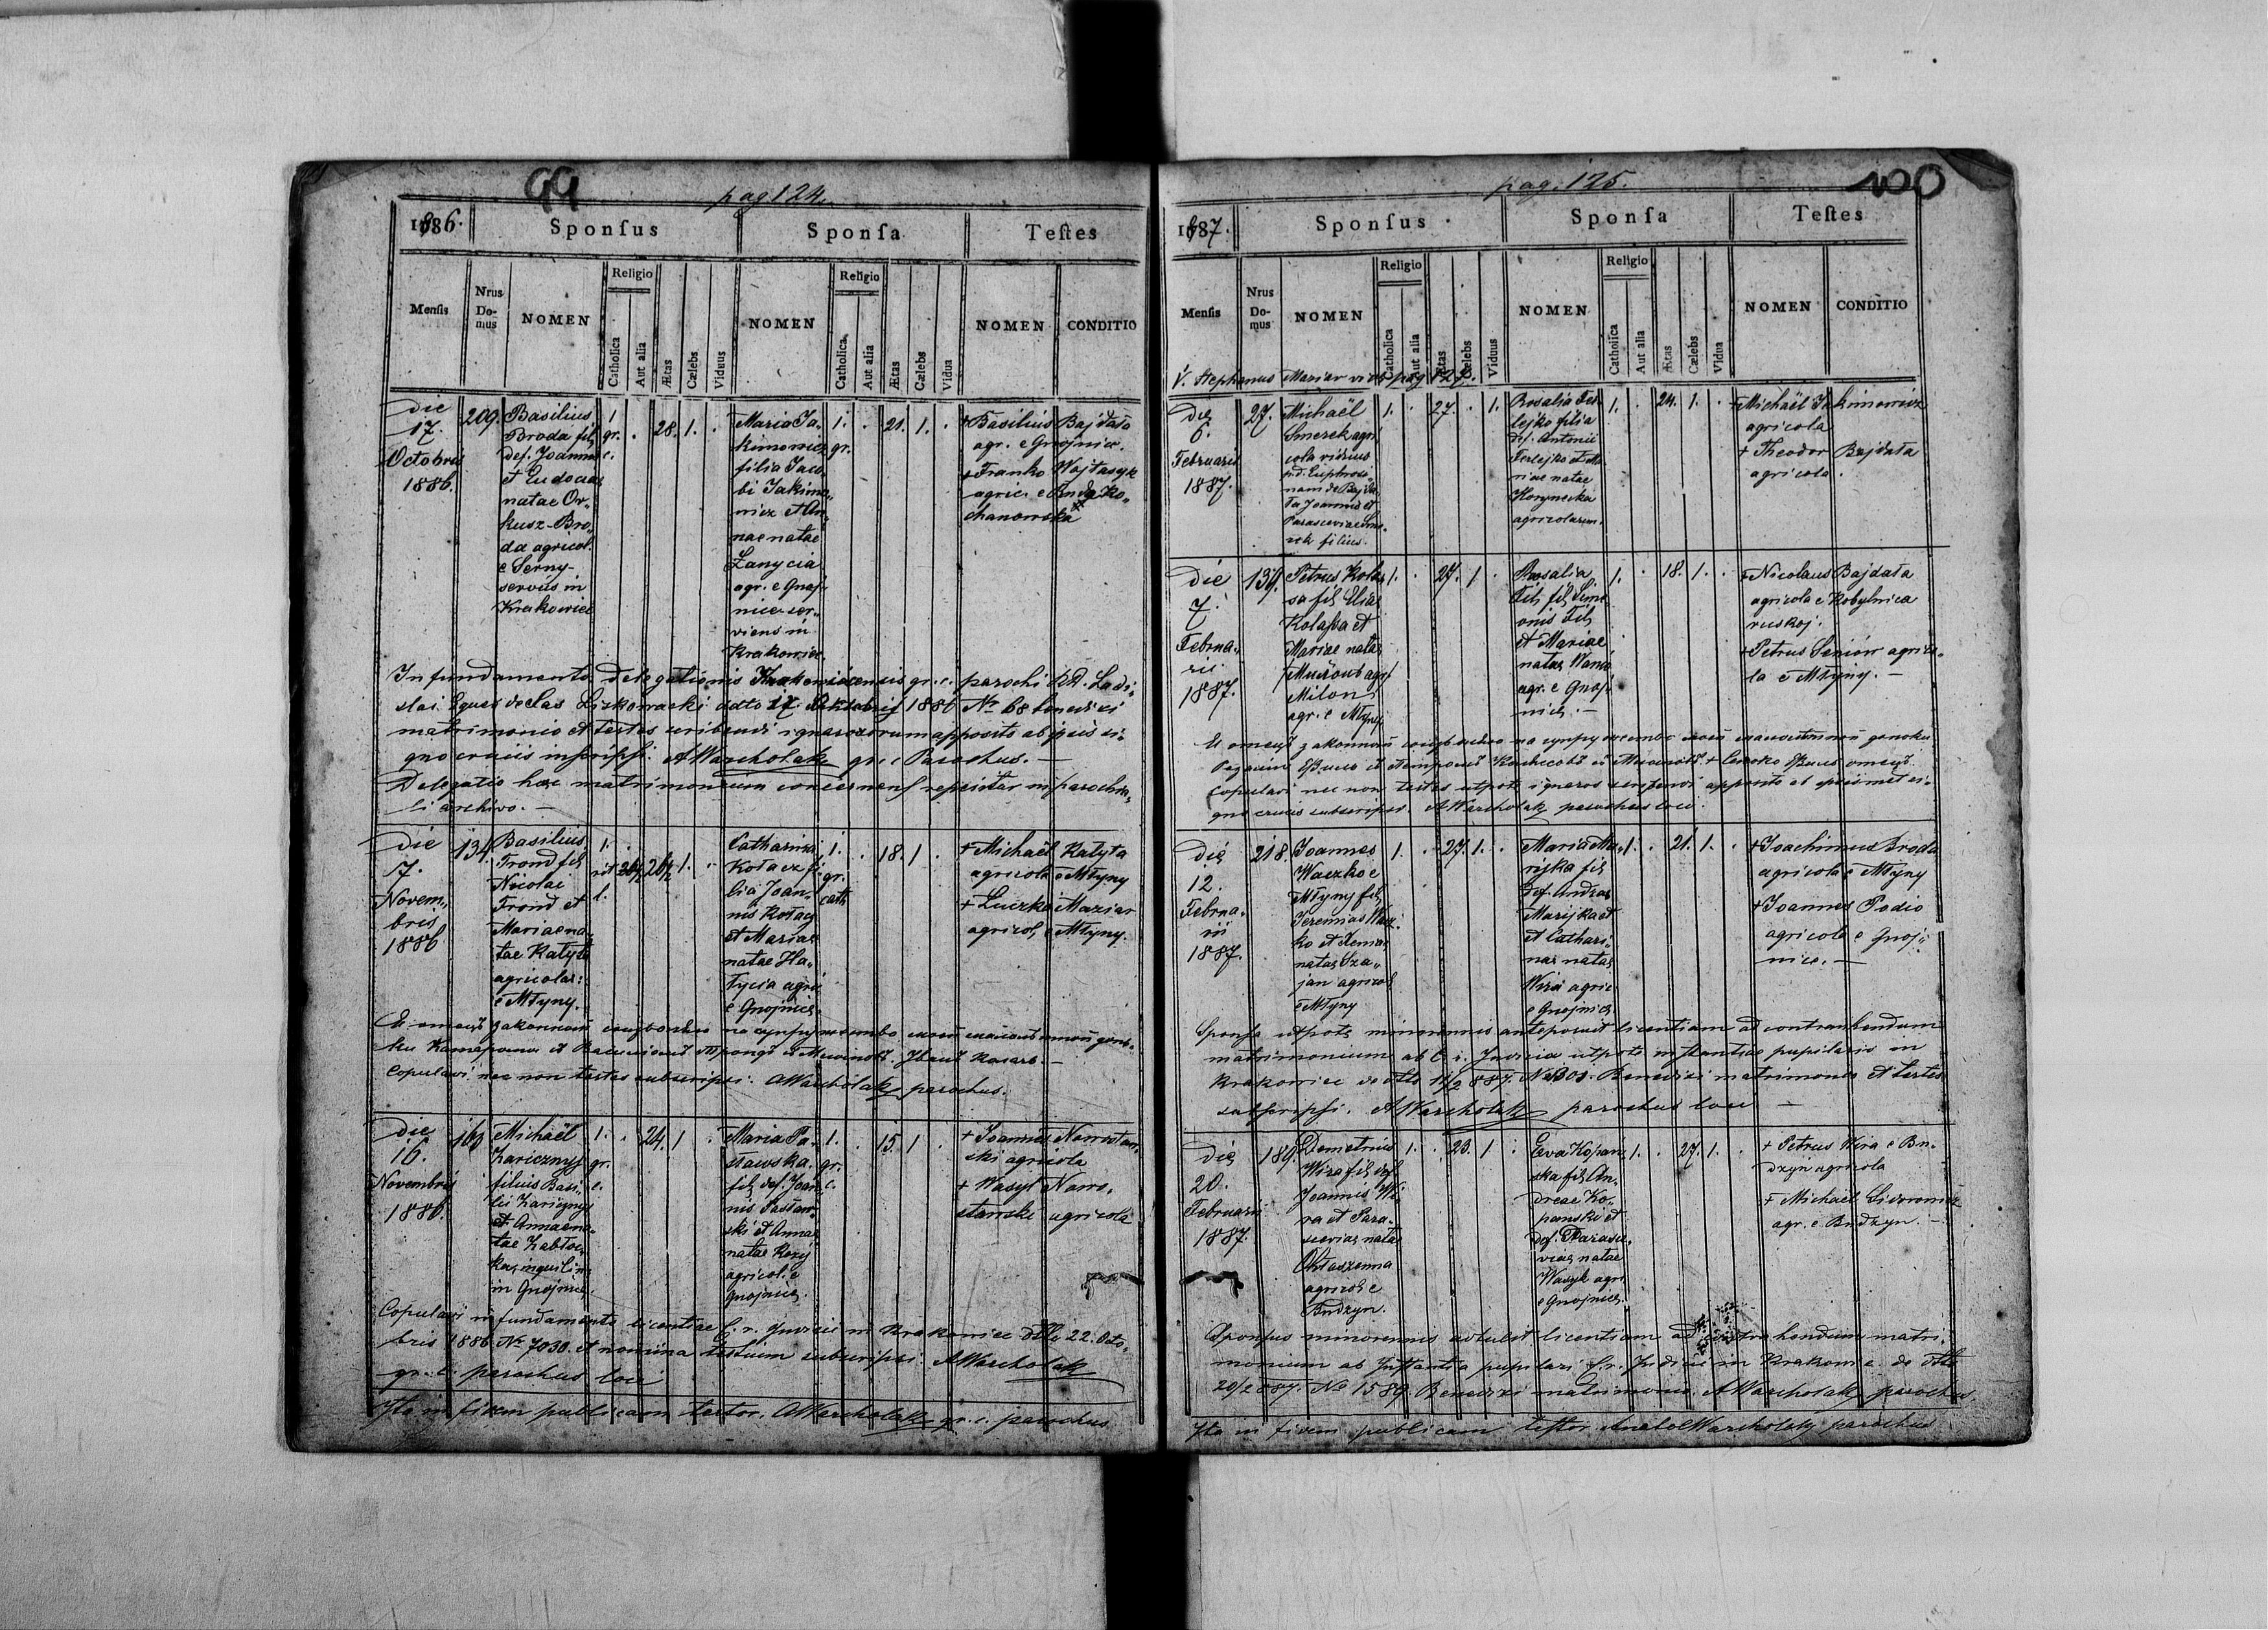 99
pag 124.
1886.
Sponſus
Sponſa
Teſtes
Menſis
Nrus Domus
NOMEN
Religio
Catholica
Aut alia
Ætas
Cælebs
Viduus
NOMEN
Religio
Catholica
Aut alia
Ætas
Cælebs
Vidua
NOMEN
CONDITIO
Die
17.
Octobris
1886.
209.
Basilius
Broda fil,
def. Joannis
et Eudociae
natae Or„
kusz-Bro„
da agricol.
e Serny-
servus in
Krakowiec
1
gr.
c.
28.
1.
Maria Ja„
kimowicz
filia Jaco
bi Jakimo„
wicz et An„
nae natae
Łanycia
agr. e Gnoj-
nice ser„
viens in
Krakowiec.
1.
gr.
21.
1.
+Basilius Bajdała
agr. e Gnojnice.
+Franko Wojtasyk
agric. e Ruda Ko„
chanowska
In fundamento delegationis Krakoviecensis gr. c. parochi RD. Ladi„
slai Eques de Sas Liskowacki ddto 17. Oktobris 1886 No 68 benedixi
matrimonio et testes scribendi ignarorum apposito ab ipsis si„
gno crucis inscripsi. AWarcholak gr. c Parochus. —
Delegatio haec matrimonium concernens reperitur in parochia„
li archivo. —
Die
7.
Novem„
bris
1886
134.
Basilius
Frond fil,
Nicolai
Frond et
Mariae na„
tae Katyta
agricolar:
e Młyny.
1.
rit
l.
26½
26½
1.
Catharina
Kołacz fi„
lia Joan„
nis Kołacz
et Mariae
natae Ha„
tycia agri
e Gnojnice.
1.
gr.
cath
18.
1.
+Michaël Katyta
agricola e Młyny
+Luczko Maziar
agricol, e Młyny.
Copulavi nec non testes subscripsi. AWarcholak parochus.
Die
16.
Novembris
1886.
163
Michaël
Zaricznyj
filius Basi„
lii Zaricznyj
et Annae na„
tae Zabłoc„
ka, inquilin
in Gnojnice.
1.
gr.
c.
24.
1
Maria Pa„
sławska.
fil, def. Joan„
nis Pasław„
ski et Annae
natae Kozij
agricol. e
Gnojnice.
1.
gr.
c.
15.
1
+Joannes Nowostaw„
ski agricola
+Wasyl Nowo„
stawski agricola
Copulavi in fundamento licentiae C. r. Judicii in Krakowiec ddto 22. Octo„
bris 1886 No 7030. et nomina testium subscripsi AWarcholak
gr. c. parochus loci
Ita in fidem publicam testor. AWarcholak gr. c. parochus.
100
pag. 125.
1887.
Sponſus
Sponſa
Teſtes
Menſis
Nrus Domus
NOMEN
Religio
Catholica
Aut alia
Ætas
Cælebs
Viduus
NOMEN
Religio
Catholica
Aut alia
Ætas
Cælebs
Vidua
NOMEN
CONDITIO
V. Stephanus Maziar vide pag 127.
Die
6.
Februarii
1887.
27.
Michaël
Smerek agri
cola viduus
Euphrosi„
nam de Bajda„
ła Joannis et
Parasceviae Sme„
rek filius.
1.
27.
1.
Rosalia Fer
lejko filia
def. Antonii
Ferlejko et Ma
riae natae
Korynecka
agricolarum.
1.
24.
1.
+Michaël Jakimowicz
agricola
+Theodor Bajdała
agricola.
Die
7.
Februa„
rii
1887.
139.
Petrus Kola
sa fil, Eliae
Kolassa et
Mariae natae
Milon
agr. e Młyny
1.
27.
1
Rosalia
Fil, fil, Sime
onis Fil,
et Mariae
natae
agr. e Gnoj„
nice. —
1.
18.
1.
+Nicolaus Bajdała
agricola e Kobylnica
ruskoj.
+Petrus Senior agrico„
la e Młyny. —
Copulavi nec non testes utpote ignaros scribendi apposito ab ipsismet si„
gno crucis subscripsi. AWarcholak parochus loci.
Die
12.
Februa„
rii
1887.
218.
Joannes
Waczko e
Młyny fil,
Jeremias Wacz„
ko et
natae Sza„
jan agricol
e Młyny
1.
27.
1.
Maria Ma„
rijka fil,
def. Andreae
Marijka et
et Cathari„
nae natae
Wira agric
e Gnojnice
1.
21.
1.
+Joachimus Broda
agricola e Młyny
+Joannes Podio
agricola e Gnoj„
nice. —
Sponsa utpote minorennis anteposuit licentiam ad contrahendum
matrimonium ab C. r. Judicia utpote instantiae pupilaris in
Krakowiec de dtto 11/2 887. No 803. Benedixi matrimonio et testes
subscripsi. AWarcholak parochus loci —
Die
20.
Februarii
1887.
189.
Demetrius
Wira fil, def.
Joannis Wi„
ra et Para„
sceviae natae
agricol e
Budzyn.
1.
23.
1
Eva Kopań
ska fil, An„
dreae Ko„
panski et
def. Parasce„
viae natae
Wasyk agri
e Gnojnice.
1.
27.
1.
+ Petrus Wira e Bu„
dzyn agricola
+ Michaël Sidorowicz
agr. e Budzyn. —
Sponsus minorennis adtulit licentiam ad contrahendum matri„
monium ab Instantia pupilari C. r. Judicii in Krakowie. de dtto
20/2 887. No 1589. Benedixi matrimonio. AWarcholak parochus
Ita in fidem publicam testor Anatol Warcholak parochus